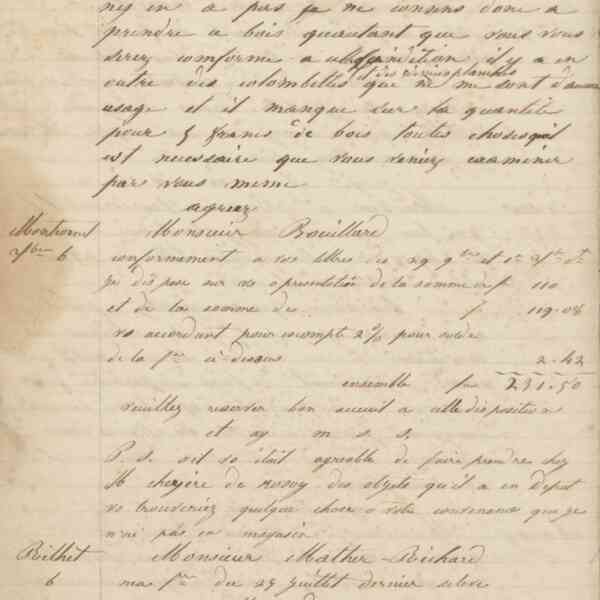 n'y en a pas je ne consens donc a
prendre a bois qu'autant que vous vous
serez conforme a il y a en
et des planches
outre des colombelles que ne me sont d'aucun
usage et il manque sur la quantité
pour 5 francs de bois toutes choses qu'il
est nécessaire que vous veniez examiner
par vous meme
agreez
Montromet Monsieur Rouillard
7bre 6 conformement a vos lettres des 29 et 1er
je dispose sur vos a présentation de la somme de f 110
et de la somme de f 119.08
vs accordant pour escompte 2 % pour solde
de la fre ci dessus 2.42
ensemble f 231.50
veuillez reserver bon accueil a cette disposition
et ag m s s.
P. S. s'il vs était agreable de faire prendre chez
Mr de Rosoy des objets qu'il a en depot
vs trouveriez quelque chose a votre convenance que je
n'ai pas en magasin
Rilhet Monsieur Mather-Richard
6 ma fre du 25 juillet dernier